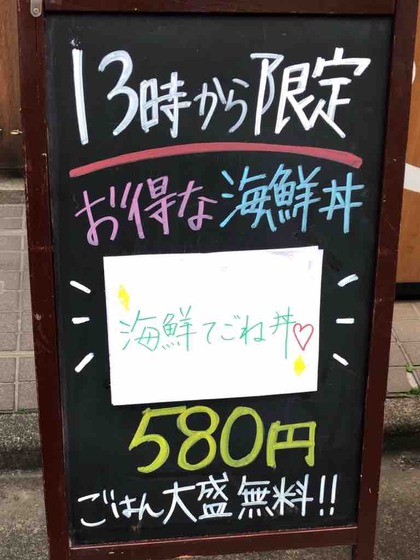 13時から限定
お得な海鮮丼
海鮮てごね丼♡
580円
ごはん大盛無料!!